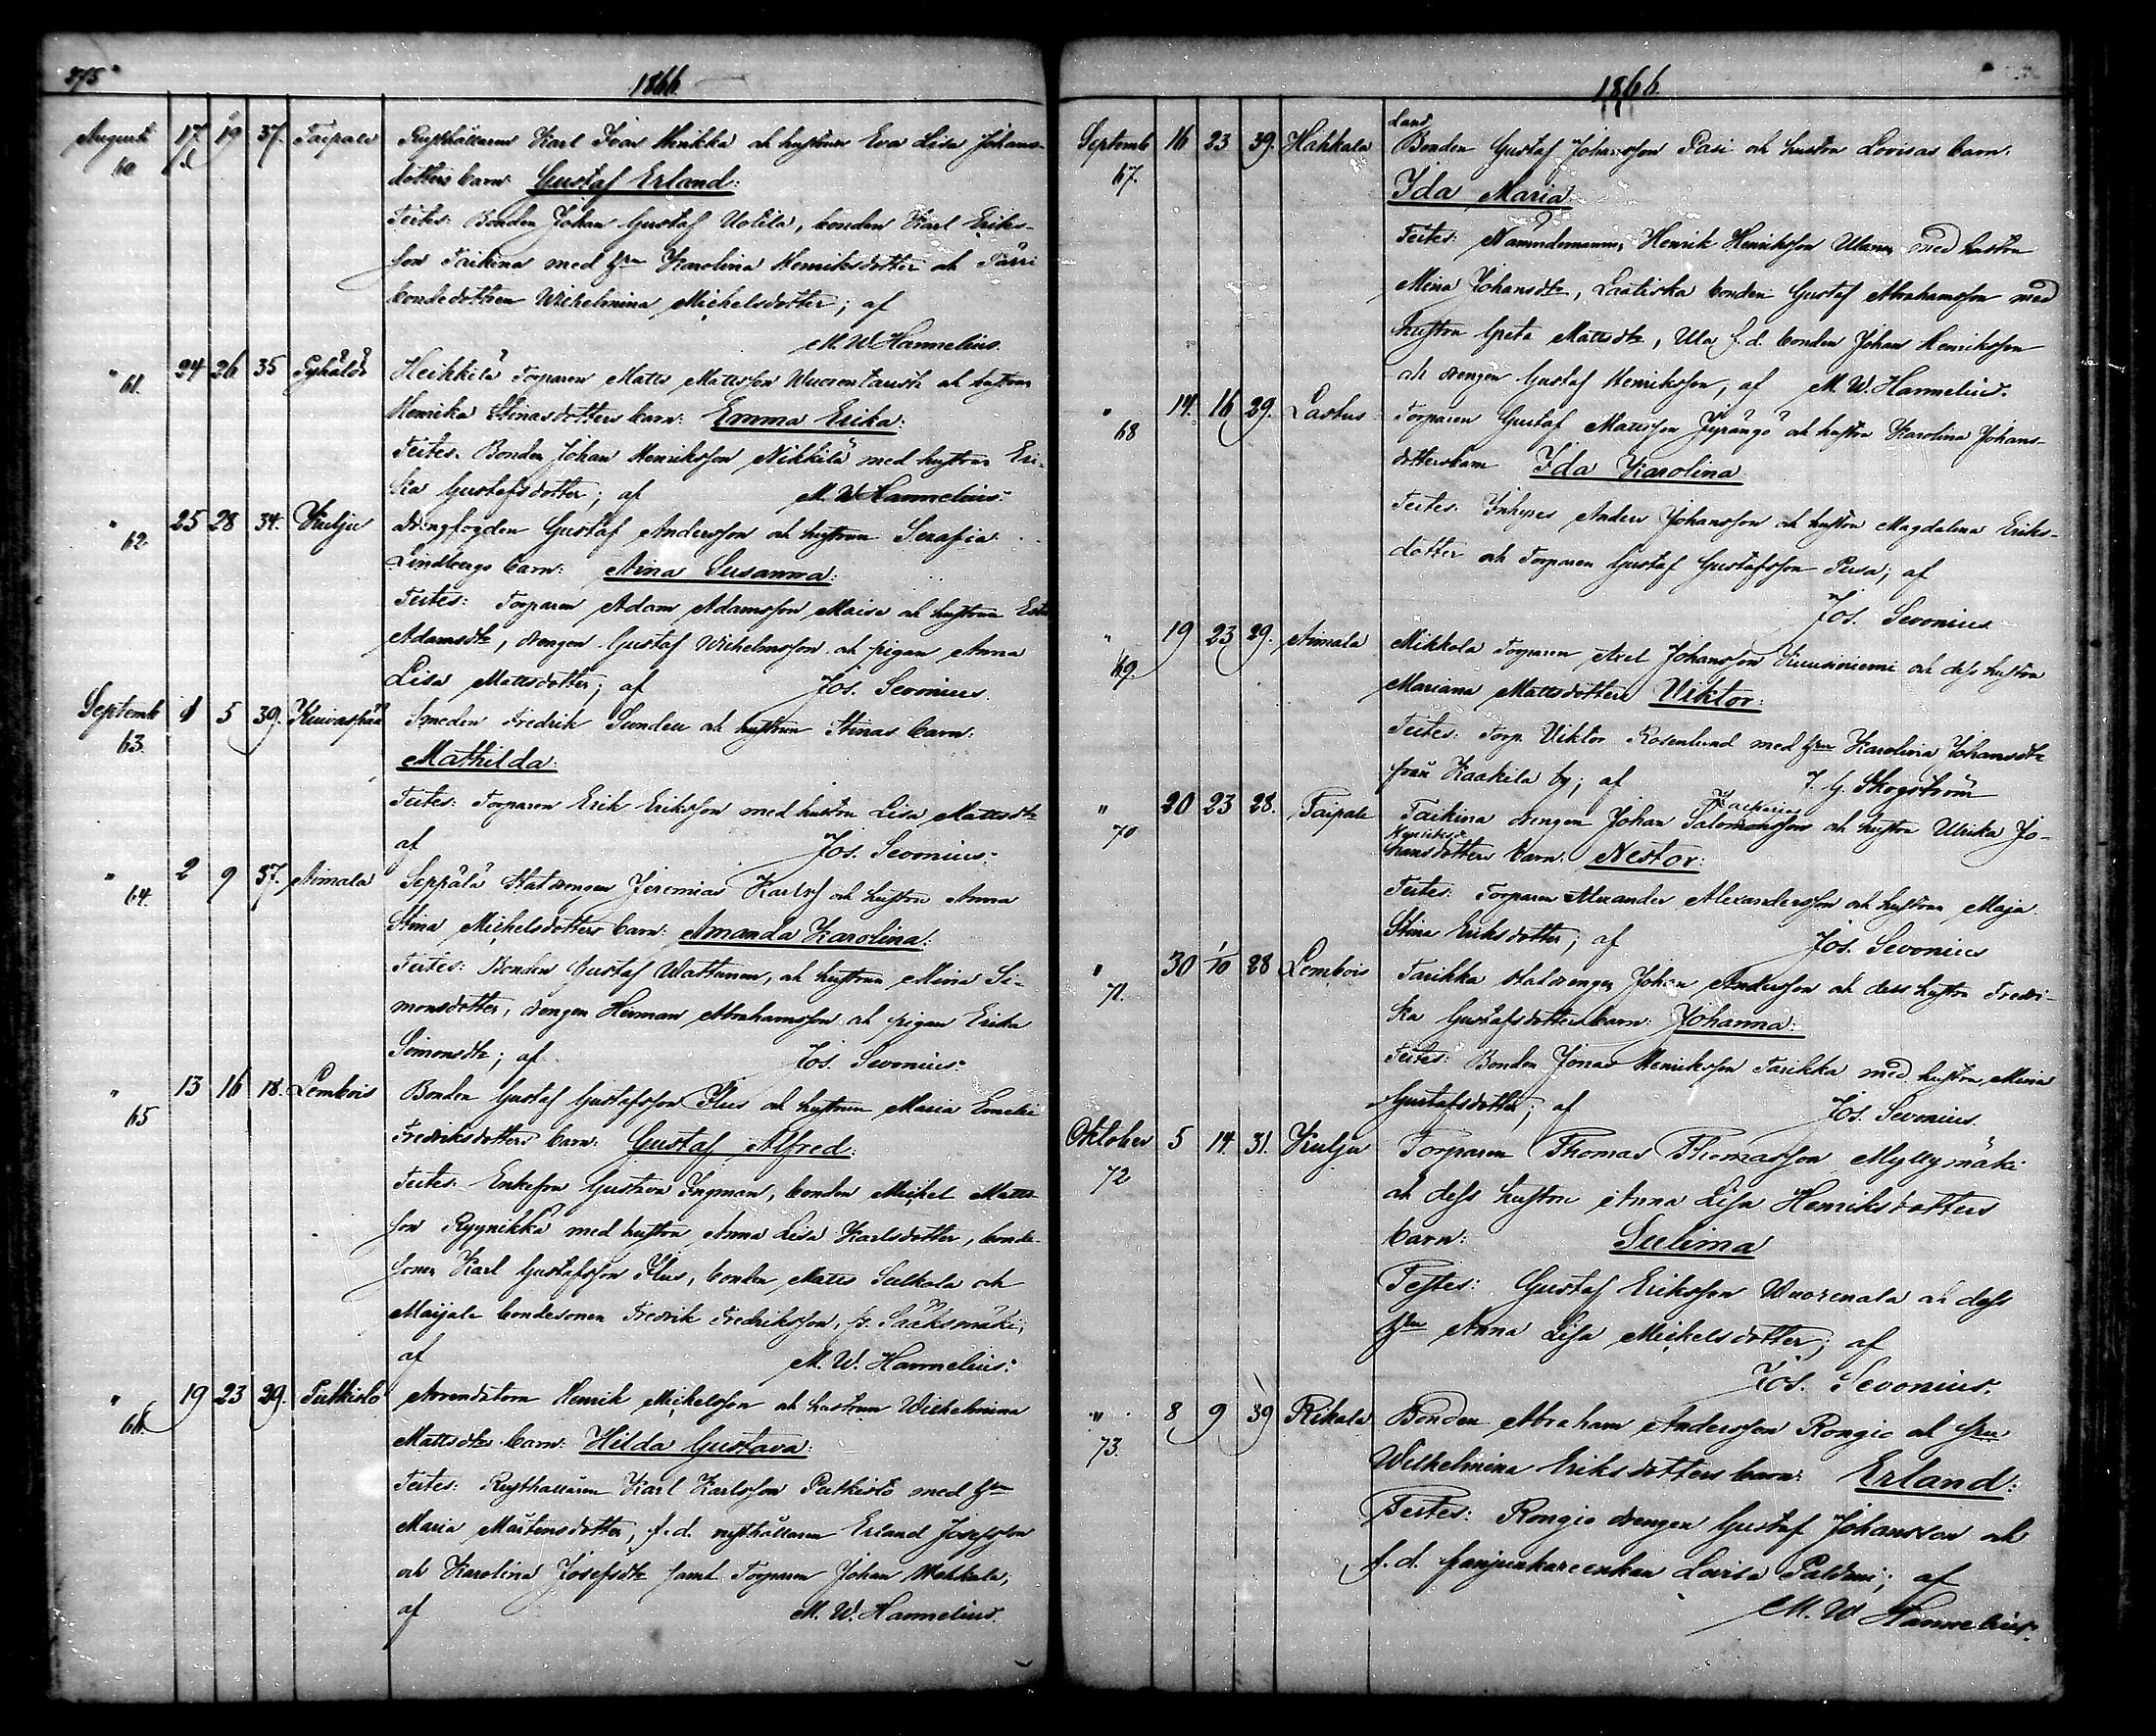 275
1866.
Augusti 17. 19 37. Taipale Rusthållaren Karl Ivar Hinikka och hustrun Eva Lisa Johans-
60 dotters barn: Gustaf Erland:
Testes: Bonden Johan Gustaf Uotila, bonden Karl Eriks-
son Taikina med Hu Karolina Henriksdotter och
bondedottren Wilhelmina Michelsdotter; af
M. W. Hannelius.
" 24 26 35 Pyhälö Heikkilä Torparen Matts Mattsson Wuorentausta och hustrun
61. Henrika Stinasdotters barn: Emma Erika:
Testes. Bonden Johan Henriksson Nikkilä med hustrun Eri-
ka Gustafsdotter; af M. W. Hannelius.
" 25 28 34. Kulju drengfogden Gustaf Andersson och hustrun Serafia
62. Lindbergs barn: Aina Susanna:
Testes: Torparen Adam Adamsson Maisi och hustrun
Adamsdtr, drengen Gustaf Wilhelmsson och pigan Anna
Lisa Mattsdotter; af Jos. Sevonius.
Septemb 1 5 39. Kuivaspää Smeden Fredrik Sundell och hustrun Stinas barn:
63. Mathilda:
Testes: Torparen Erik Eriksson med hustru Lisa Mattsdtr
af Jos. Sevonius.
" 2 9 37. Aimala Seppälä Statdrengen Jeremias Karlss och hustru Anna
64. Stina Michelsdotters barn: Amanda Karolina:
Testes: Bonden Gustaf Wattunen, och hustrun Miina Si-
monsdotter, drengen Herman Abrahamsson och pigan Erika
Simonsdtr; af Jos. Sevonius.
" 13 16 18. Lembois Bonden Gustaf Gustafsson Klus och hustrun Maria Emelie
65 Fredriksdotters barn: Gustaf Alfred:
Testes: Enkefru Gustava Ingman, bonden Michel Matts-
son Ryynikkä med hustru Anna Lisa Karlsdotter, bonde-
sonen Karl Gustafsson Klus, bonden Matts Sulkola och
Maijala bondesonen Fredrik Fredriksson, fr. Sääksmäki;
af M. W. Hannelius.
" 19 23 29. Putkisto Arrendatorn Henrik Michelsson och hustrun Wilhelmina
66. Mattsdtrs barn: Hilda Gustava:
Testes: Rusthållaren Karl Karlsson Putkisto med Hu
Maria Mårtensdotter, f.d. rusthållaren Erland Josefsson
och Karolina Josefsdtr samt Torparen Johan Mahkala;
af M. W. Hannelius.
1866.
Septemb 16 23 39. Hahkala Bonden Gustaf Johansson Pasi och hustru Lovisas barn:
67. Ida Maria:
Testes: Nämndemannen Henrik Henriksson Ulanen med hustru
Mina Johansdtr, Laatiska bonden Gustaf Abrahamsson med
hustru Greta Mattsdtr, Ula f.d. bonden Johan Henriksson
och drengen Gustaf Henriksson; af M. W. Hannelius.
" 14. 16 29. Lastus Torparen Gustaf Mattsson Jyrängö och hustru Karolina Johans-
68 dotters barn Ida Karolina
Testes: Inhyses Anders Johansson och hustru Magdalena Eriks-
dotter och Torparen Gustaf Gustafsson Pusa; af
Jos. Sevonius
" 19 23 29. Aimala Mikkola Torparen Axel Johansson Kuusiniemi och dess hustru
69. Mariana Mattsdotters Viktor:
Testes: Torp. Viktor Rosenlund med Hu Karolina Johansdtr
från Kaakila by; af J. G. Skogström
" 20 23 28. Taipale Taikina drengen Johan Salomonsson och hustru Ulrika Jo-
70 hansdotters barn: Nestor:
Testes: Torparen Alexander Alexandersson och hustrun Maja
Stina Eriksdotter; af Jos. Sevonius
" 30 1/10 28 Lembois Tarikka statdrengen Johan Andersson och dess hustru Fredri-
71. ka Gustafsdotters barn: Johanna:
Testes: Bonden Jonas Henriksson Tarikka med hustru Miina
Gustafsdotter; af Jos. Sevonius.
Oktober 5 14. 31. Kulju Torparen Thomas Thomasson Myllymäki
72 och dess hustru Anna Lisa Henriksdotters
barn: Sulima
Testes: Gustaf Eriksson Wuorenala och dess
Hu Anna Lisa Michelsdotter; af
Jos. Sevonius.
" 8 9 39 Rikala Bonden Abraham Andersson Rongio och Hu
73. Wilhelmina Eriksdotters barn: Erland:
Testes: Rongio drengen Gustaf Johansson och
f.d. fanjunkareenkan Lovisa Paldani; af
M. W. Hannelius.